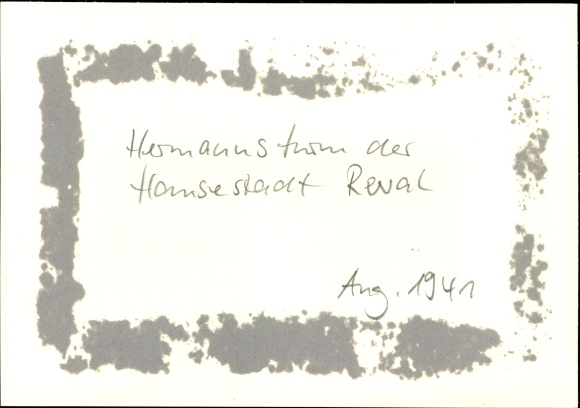 Hermannsturm der
Hansestadt Reval
Aug. 1941